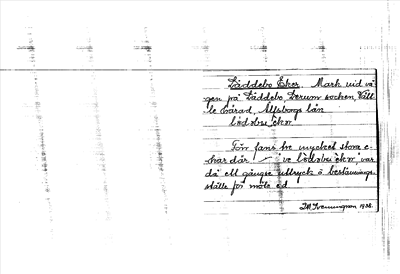 Läddebo Eker. Mark vid vä-
gen på Läddebo, Lerum socken, Vätt-
le härad, Älfsborgs län
lödabu ekɷr
Förr fans tre mycket stora e-
kar där. "ve lödabu ekɷr" var
då ett gängse uttryck o bestämnings-
ställe för möte ed
1938.